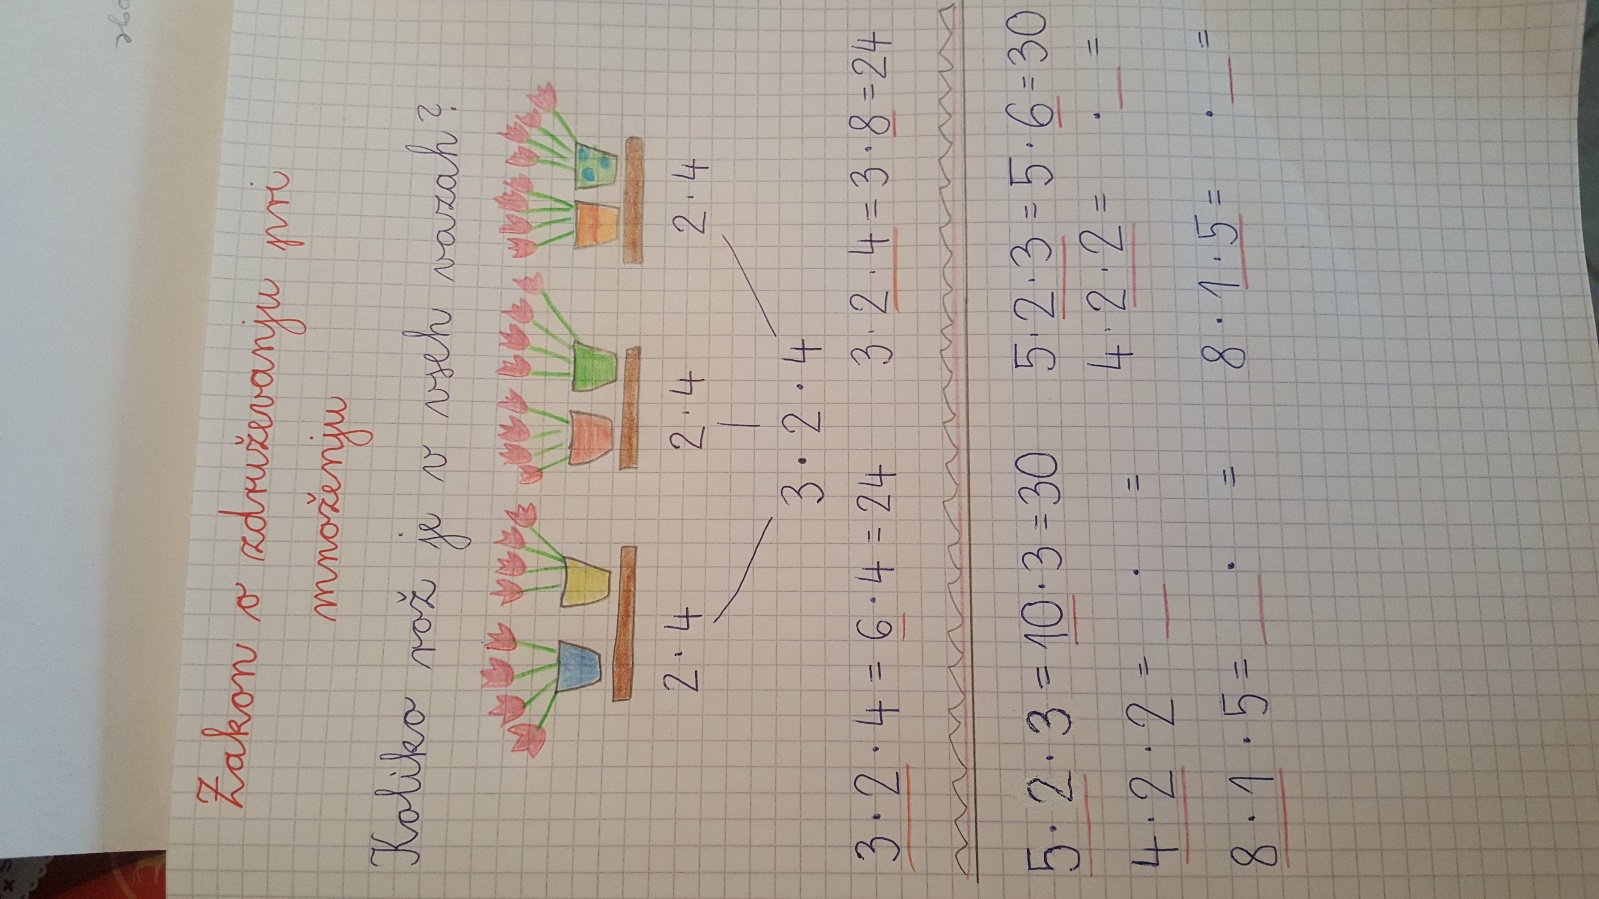 Zakon o združevanju pri
množenju
Koliko rož je v vseh vazah?
2·4 2·4 2·4
3·2·4
3·2·4 = 6·4 = 24 3·2·4 = 3·8 = 24
5·2·3 = 10·3 = 30 5·2·3 = 5·6 = 30
4·2·2 = _ · = 4·2·2 = · _ =
8·1·5 = _ · = 8·1·5 = · _ =